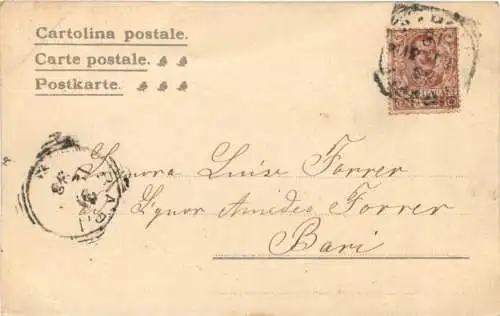 Cartolina postale.
Carte postale.
Postkarte.
Signora Luise Forrer
Signor Amedeo Forrer
Bari